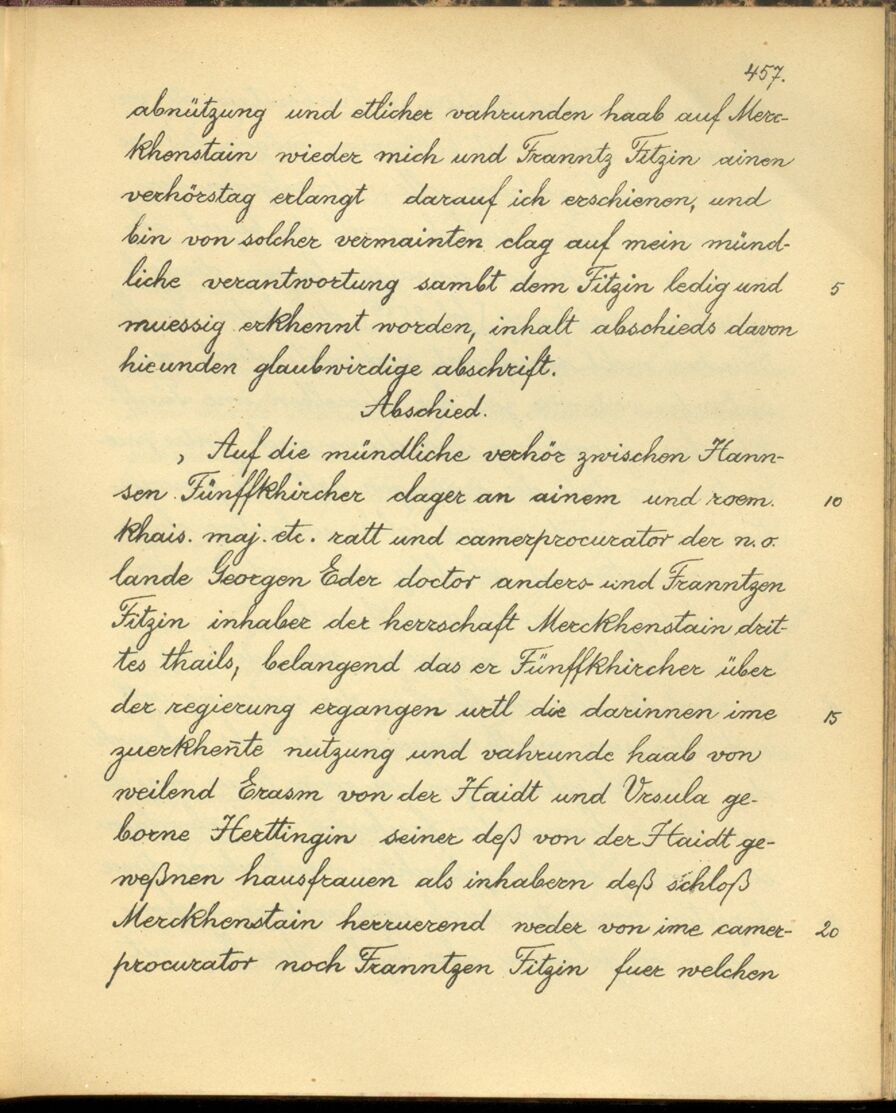 457.
abnützung und etlicher vahrunden haab auf Merc-
khenstain wieder mich und Franntz Fitzin ainen
verhörstag erlangt darauf ich erschienen, und
bin von solcher vermainten clag auf mein münd-
liche verantwortung sambt dem Fitzin ledig und 5
muessig erkhennt worden, inhalt abschieds davon
hieunden glaubwirdige abschrift.
Abschied.
, Auf die mündliche verhör zwischen Hann-
sen Fünffkhircher clager an ainem und roem. 10
khais. maj. etc. ratt und camerprocurator der n. o.
lande Georgen Eder doctor anders und Franntzen
Fitzin inhaber der herrschaft Merckhenstain drit-
tes thails, belangend das er Fünffkhircher über
der regierung ergangen urtl die darinnen ime 15
zuerkhen̄te nutzung und vahrunde haab von
weilend Erasm von der Haidt und Vrsula ge-
borne Herttingin seiner deß von der Haidt ge-
weßnen hausfrauen als inhabern deß schloß
Merckhenstain herruerend weder von ime camer- 20
procurator noch Franntzen Fitzin fuer welchen